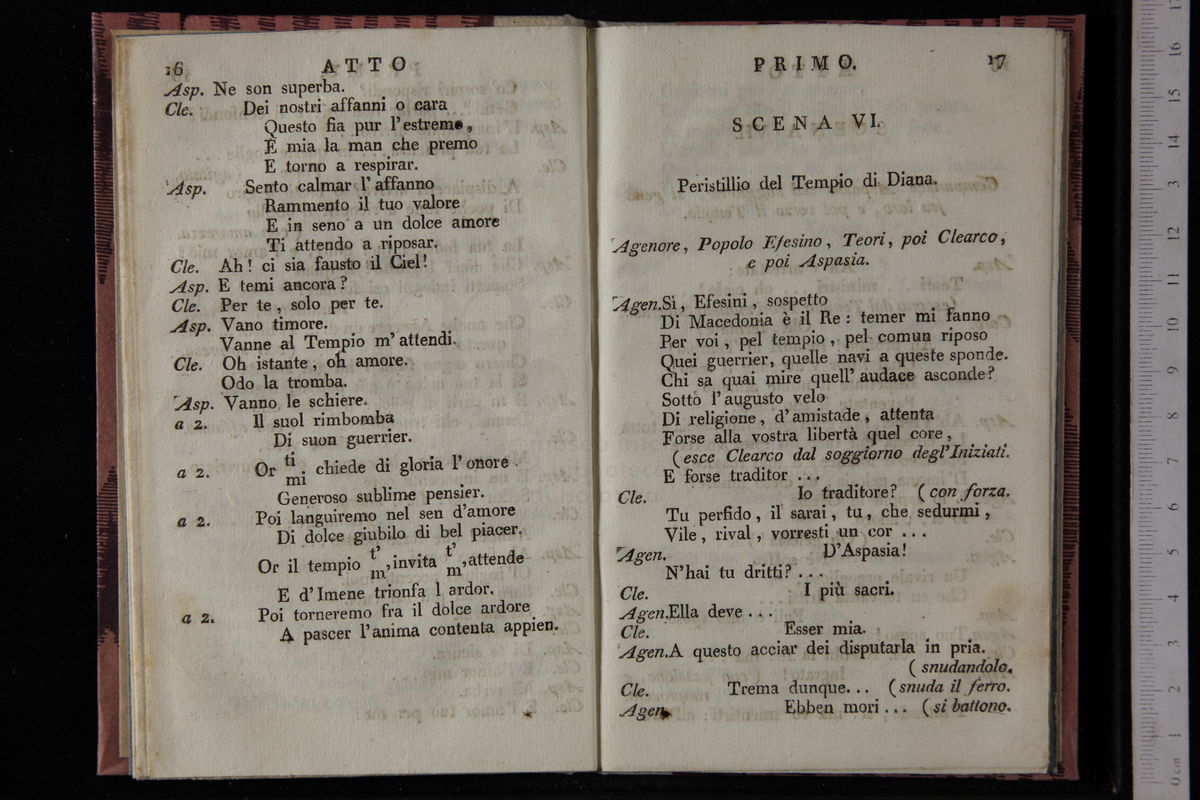 16 ATTO
Asp. Ne son superba.
Cle. Dei nostri affanni o cara
Questo fia pur l'estremo,
È mia la man che premo
E torno a respirar.
Asp. Sento calmar l'affanno
Rammento il tuo valore
E in seno a un dolce amore
Ti attendo a riposar.
Cle. Ah! ci sia fausto il Ciel!
Asp. E temi ancora?
Cle. Per te, solo per te.
Asp. Vano timore.
Vanne al Tempio m'attendi.
Cle. Oh istante, oh amore.
Odo la tromba.
Asp. Vanno le schiere.
a 2. Il suol rimbomba
Di suon guerrier.
a 2. Or ti mi chiede di gloria l'onore.
Generoso sublime pensier.
a 2. Poi languiremo nel sen d'amore
Di dolce giubilo di bel piacer.
Or il tempio t' m' invita t' m' attende
E d'Imene trionfa l ardor.
a 2. Poi torneremo fra il dolce ardore
A pascer l'anima contenta appien.
PRIMO. 17
SCENA VI.
Peristillio del Tempio di Diana.
Agenore, Popolo Efesino, Teori, poi Clearco,
e poi Aspasia.
Agen. Sì, Efesini, sospetto
Di Macedonia è il Re: temer mi fanno
Per voi, pel tempio, pel comun riposo
Quei guerrier, quelle navi a queste sponde.
Chi sa quai mire quell'audace asconde?
Sotto l'augusto velo
Di religione, d'amistade, attenta
Forse alla vostra libertà quel core,
(esce Clearco dal soggiorno degl'Iniziati.
E forse traditor ...
Cle. Io traditore? (con forza.
Tu perfido, il sarai, tu, che sedurmi,
Vile, rival, vorresti un cor ...
Agen. D'Aspasia!
N'hai tu dritti? ...
Cle. I più sacri.
Agen. Ella deve ...
Cle. Esser mia.
Agen. A questo acciar dei disputarla in pria.
(snudandolo.
Cle. Trema dunque... (snuda il ferro.
Agen. Ebben mori... (si battono.